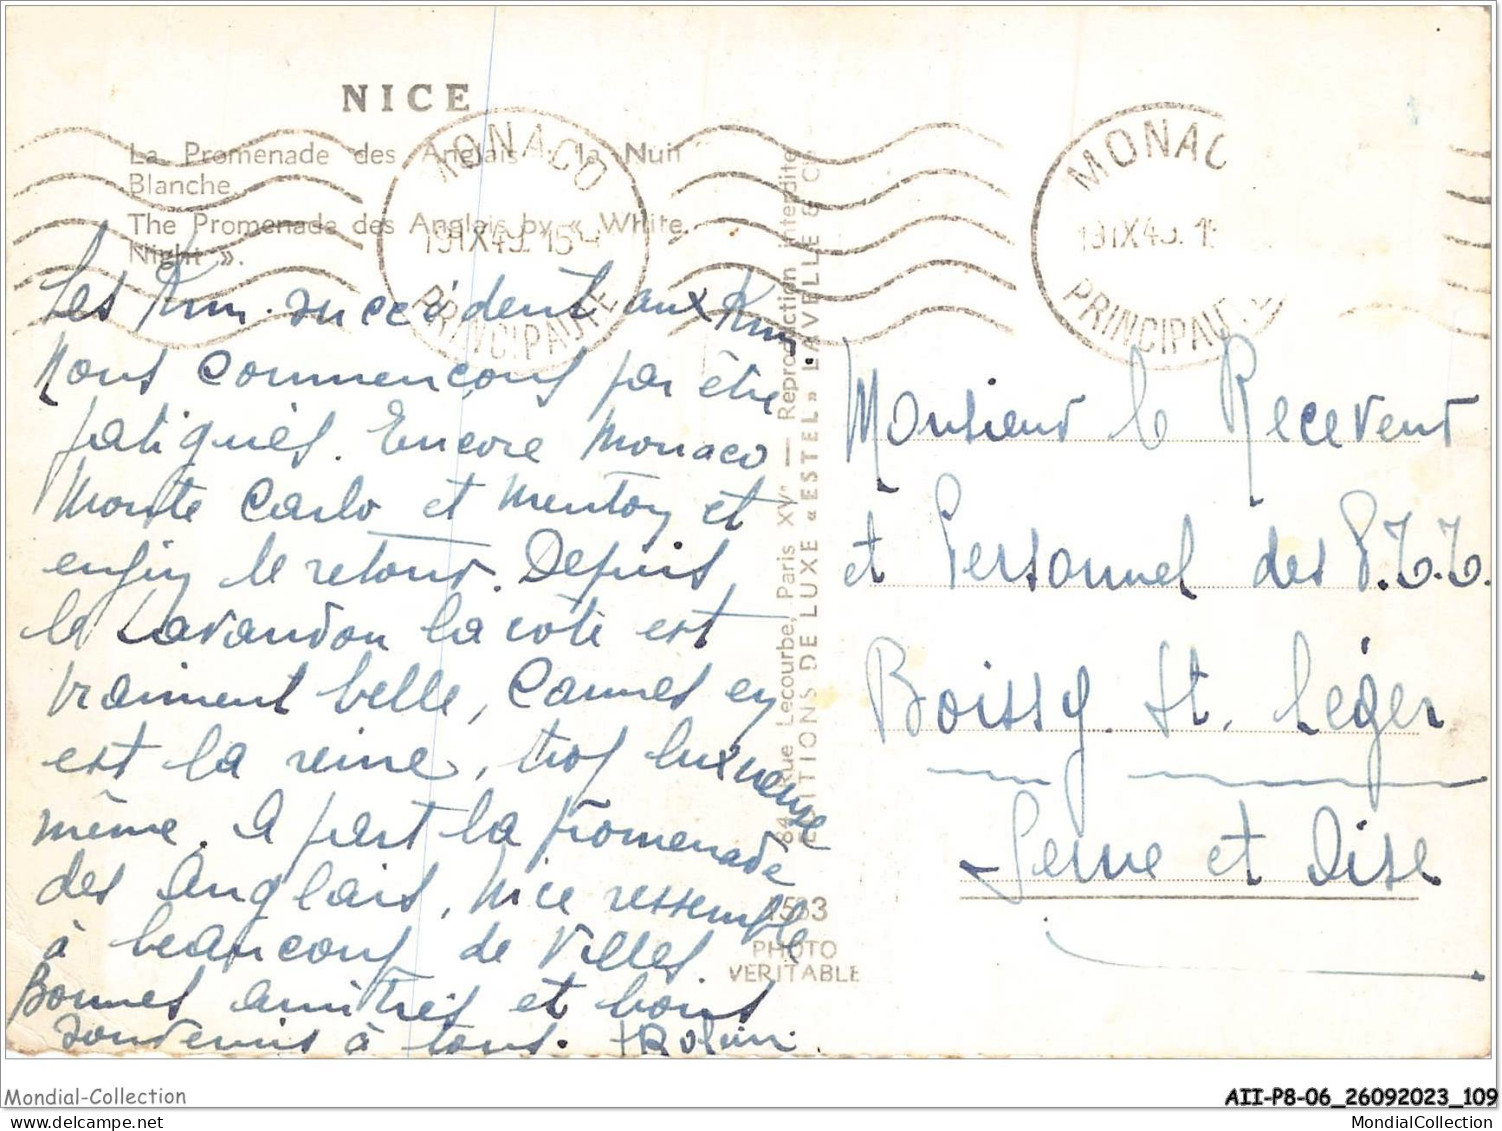 NICE
La Promenade des Anglais : la Nuit
Blanche.
The Promenade des Anglais by « White
Night ».
MONACO
19 IX 49. 15 H
PRINCIPAUTE
MONAC
19 IX 49. 15
PRINCIPAUTE
Les Km. succèdent aux Km.
Nous commençons par être
fatigués. Encore Monaco
Monte Carlo et Menton et
enfin le retour. Depuis
le Lavandou la côte est
vraiment belle, Cannes en
est la reine, trop luxueuse
même. A part la promenade
des Anglais, Nice ressemble
à beaucoup de villes.
Bonnes amitiés et bons
souvenirs à tous.
84, Rue Lecourbe, Paris XVe — Reproduction interdite
EDITIONS DE LUXE « ESTEL » LAVELLE & Cie
1563
PHOTO
VERITABLE
Monsieur le Receveur
et Personnel des P.T.T.
Boissy St. Léger
Seine et Oise
Mondial-Collection
AII-P8-06_26092023_109
delcampe.net
MondialCollection